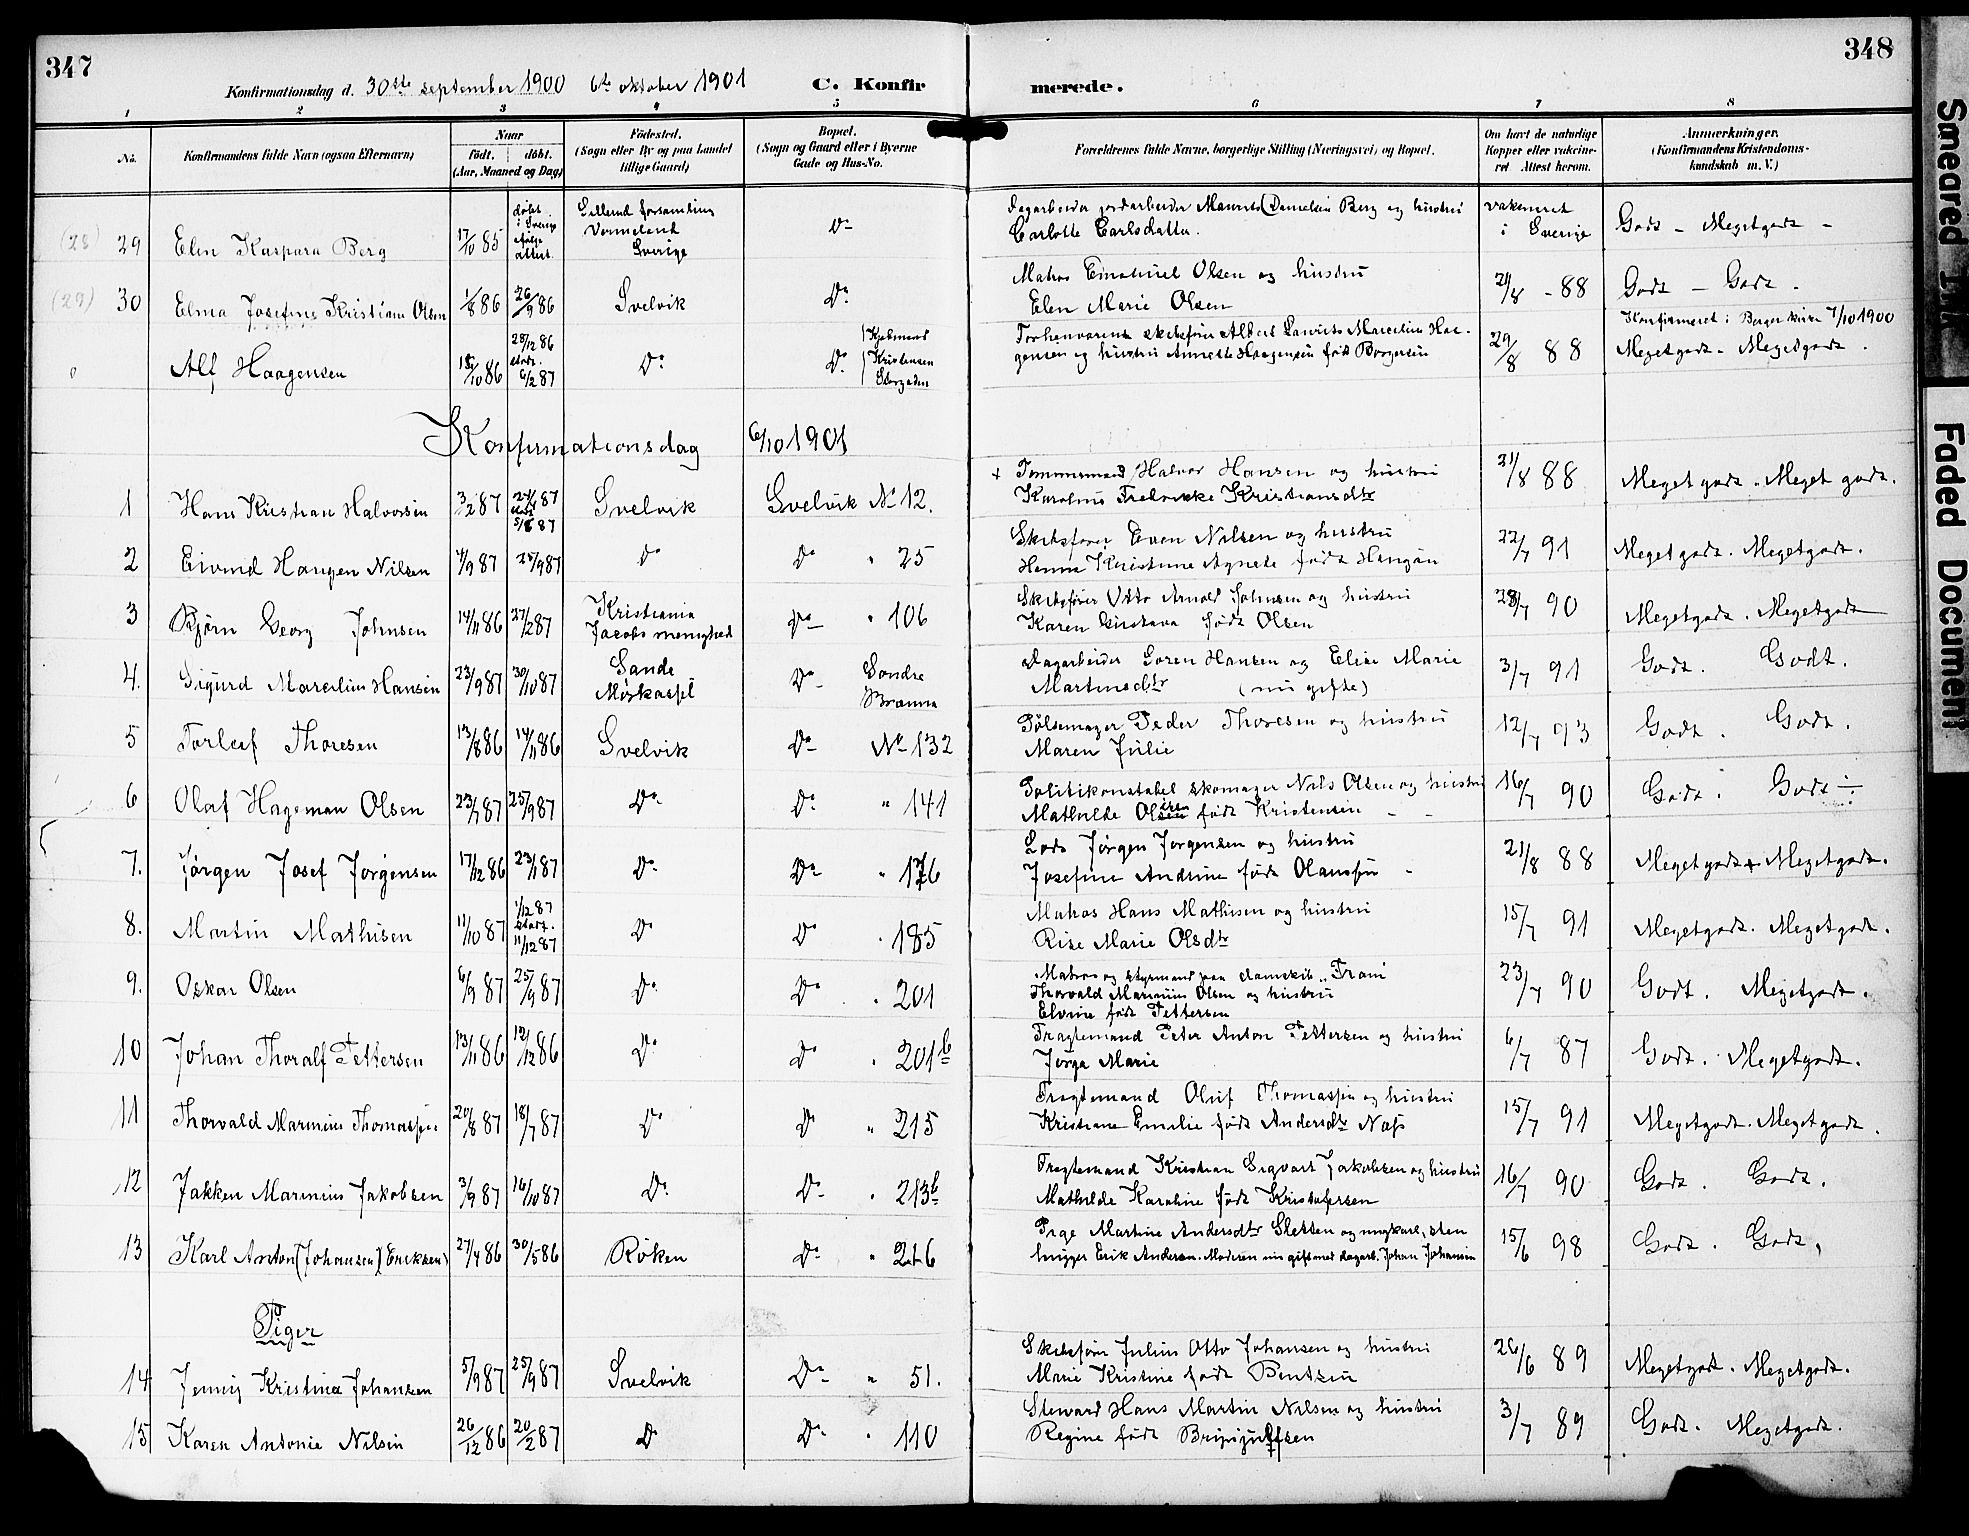 347
348
Konfirmationsdag d. 30ste september 1900 6te oktober 1901
C. Konfirmerede.
1 2 3 4 5 6 7 8
No.
Konfirmandens fulde Navn (ogsaa Efternavn)
Naar
født. døbt.
(Aar, Maaned og Dag)
Fødested.
(Sogn eller By og paa Landet
tillige Gaard)
Bopæl.
(Sogn og Gaard eller i Byerne
Gade og Hus-No.
Forældrenes fulde Navne, borgerlige Stilling (Næringsvei) og Bopæl.
Om havt de naturlige
Kopper eller vakcine-
ret Attest herom.
Anmærkninger.
(Konfirmandens Kristendoms-
kundskab m. V.)
(28) 29 Elen Kaspara Berg 17/10 85 døbt i Sverige ifølge attest Vermeland Sverige Do
Dagarbeider jordarbeider Berg og hustru
Carlotte Carlsdatter.
vakcineret i Sverige Godt – Megetgodt –
(29) 30 Elma Josefine Kristiane Olsen 1/8 86 26/9 86 Svelvik Do
Matros Emanuel Olsen og hustru
Elen Marie Olsen
21/8 - 88 Godt – Godt.
Konfirmeret i Berger kirke 7/10 1900
0 Alf Haagensen 15/10 86 28/12 86 stadf. 6/2 87 Do Do Kjøbmand Kristensen Storgaden
Forhenværende skibsfører Albert Lauritz Marcelius Haa-
gensen og hustru Annette Haagensen født Borgersen
29/8 88 Megetgodt - Megetgodt.
Konfirmationsdag 6/10 1901
1 Hans Kristian Halvorsen 3/2 87 Svelvik Svelvik No 12.
+ Tømmermand Halvor Hansen og hustru
Karoline Fredrikke Kristiansdtr
21/8 88 Meget godt. Meget godt.
2 Eivind Haugen Nilsen 4/9 87 25/9 87 Do Do " 25
Skibsfører Even Nilsen og hustru
Hanna Kristine Agnete født Haugan
22/7 91 Megetgodt. Megetgodt.
3 Bjørn Georg Johnsen 14/11 86 27/2 87 Kristiania Jacobs menighed Do " 106
Skibsfører Otto Arnold Johnsen og hustru
Karen Gustava født Olsen
28/7 90 Megetgodt. Megetgodt
4. Sigurd Marcelius Hansen 23/9 87 30/10 87 Sande Do Søndre Brænna
Dagarbeider Søren Hansen og Elise Marie
Martinsdtr (nu gifte)
3/7 91 Godt. Godt.
5 Torleif Thoresen 13/8 86 14/11 86 Svelvik Do No 132
Pølsemager Peder Thoresen og hustru
Maren Julie
12/7 93 Godt. Godt.
6 Olaf Hageman Olsen 23/7 87 25/9 87 Do Do " 141
Politikonstabel skomager Nils Olsen og hustru
Mathilde Olsen født Kristensen
16/7 90 Godt. Godt
7. Jørgen Josef Jørgensen 17/12 86 23/1 87 Do Do " 176
Lods Jørgen Jørgensen og hustru
Josefine Andrine født Olaussen
21/8 88 Megetgodt. Megetgodt.
8. Martin Mathisen 11/10 87 1/12 87 stadf. 11/12 87 Do Do " 185
Matros Hans Mathisen og hustru
Rise Marie Olsdtr
15/7 91 Megetgodt. Megetgodt.
9. Oskar Olsen 6/9 87 25/9 87 Do Do " 201
Matros og styrmand paa damskib "Fram
Thorvald Marinius Olsen og hustru
Elvine født Pettersen
23/7 90 Godt. Megetgodt.
10 Johan Thoralf Pettersen 13/11 86 12/12 86 Do Do " 201b
Fragtemand Peter Anton Pettersen og hustru
Jørga Marie
6/7 87 Godt. Megetgodt.
11 Thorvald Marinius Thomassen 20/6 87 18/7 87 Do Do " 215
Fragtemand Oluf Thomassen og hustru
Kristiane Emilie født Andersdtr Næss
15/7 91 Megetgodt. Megetgodt.
12 Jakken Marinius Jakobsen 3/9 87 16/10 87 Do Do " 213b
Fragtemand Kristian Sigvart Jakobsen og hustru
Mathilde Karoline født Kristofersen
16/7 90 Godt. Godt.
13 Karl Anton (Johansen) Eriksen 27/4 86 30/5 86 Røken Do " 216
Pige Martine Andersdtr Sletten og ungkarl, sten
hugger Erik Andersen. Moderen nu gift med dagarb. Johan Johansen
15/6 98 Godt. Godt.
Piger
14 Jenny Kristine Johansen 5/9 87 25/9 87 Svelvik Do " 51.
Skibsfører Julius Otto Johansen og hustru
Marie Kristine født Bentzen
26/6 89 Megetgodt. Megetgodt.
15 Karen Antonie Nilsen 26/12 86 20/2 87 Do Do " 110
Steward Hans Martin Nilsen og hustru
Regine født Brynjulfsen
3/7 89 Godt. Megetgodt.
Smeared Ink
Faded Document